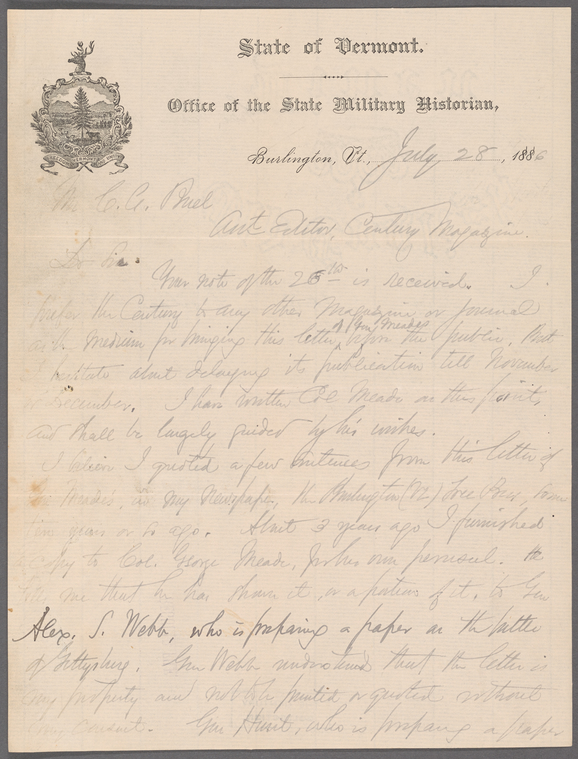 State of Vermont.
Office of the State Military Historian,
Burlington, Vt., July 28, 1886
Mr C. C. Buel
Asst Editor Century Magazine.
Dr Sir.
Your note of the 26th is received. I
prefer the Century to any other Magazine or journal
as a medium for bringing this letter of Gen. Meade's before the public. But
I hesitate about delaying its publication till November
or December. I have written Col Meade on this point,
and shall be largely guided by his wishes.
I believe I quoted a few sentences from this letter of
Gen Meade's, in my newspaper, the Burlington (Vt.) Free Press, some
ten years or so ago. About 3 years ago I furnished
a copy to Col. George Meade, for his own perusal. He
tells me that he has shown it, or a portion of it, to Gen
Alex. S. Webb, who is preparing a paper on the battle
of Gettysburg. Gen Webb understands that the letter is
my property and not to be printed or quoted without
my consent. Gen Hunt, who is preparing a paper